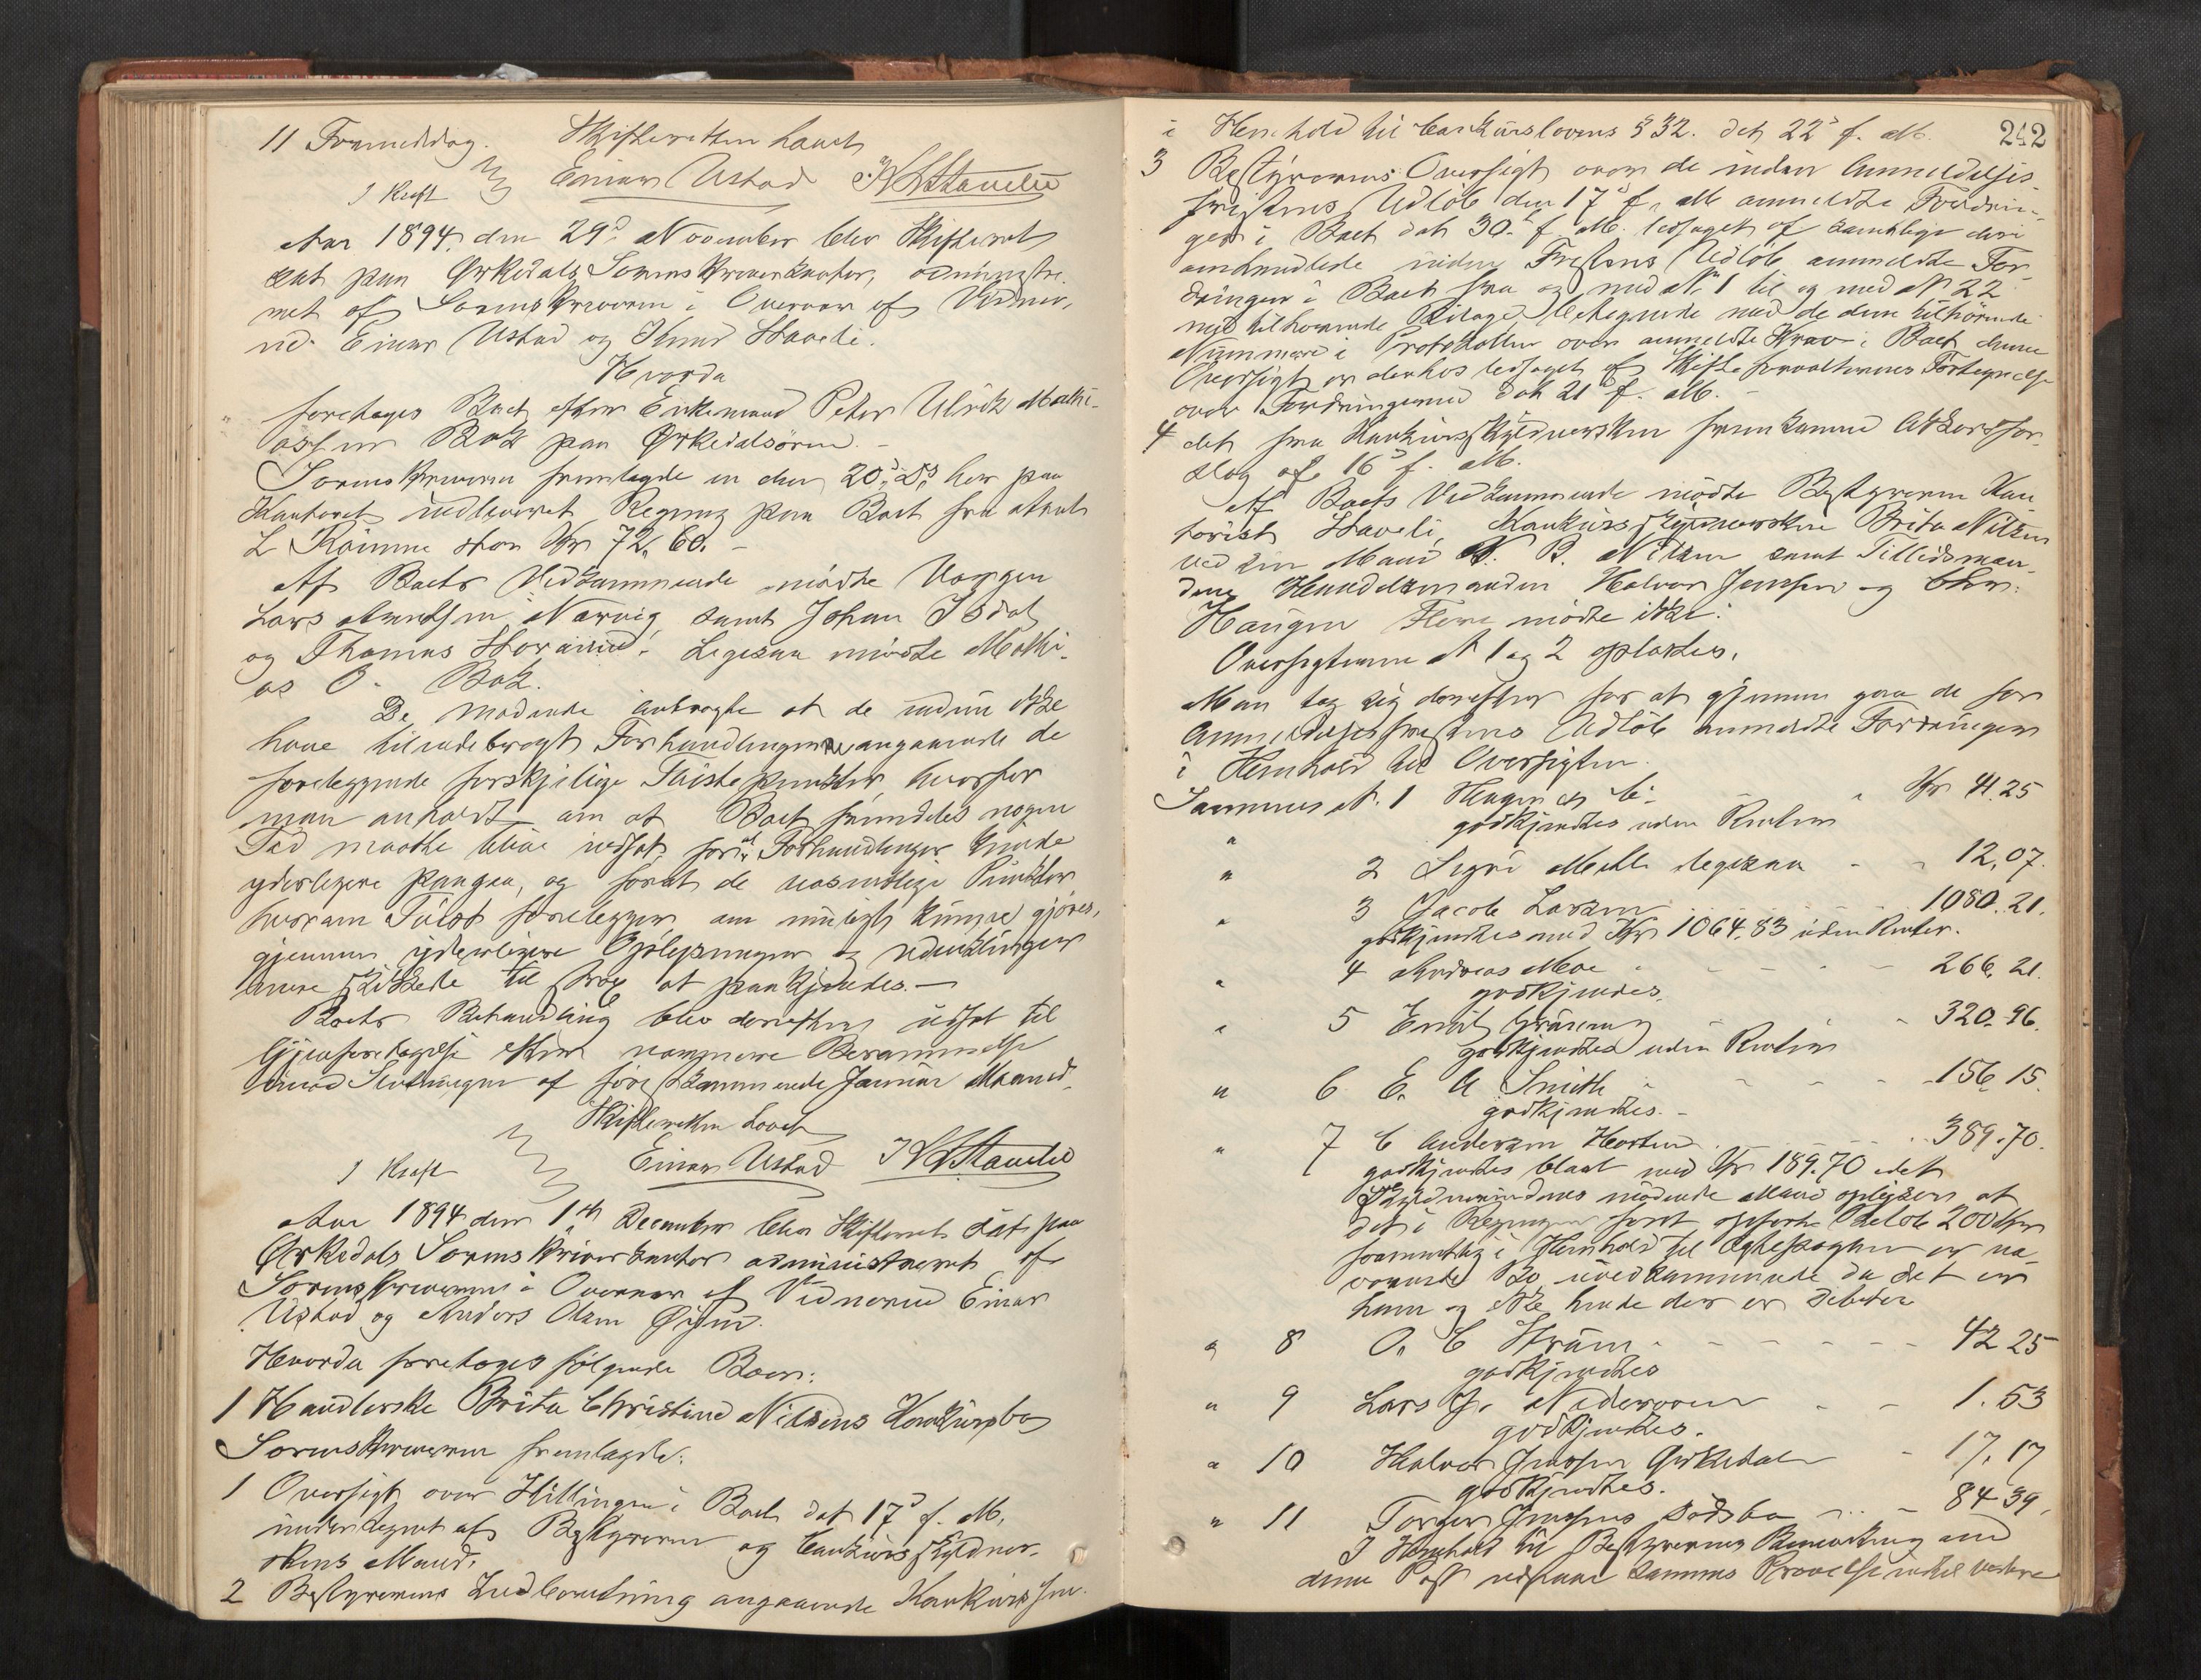 11 Formiddag. Skifteretten hævet
J Kraft Einar Ustad K L Staveli
Aar 1894, den 29d November blev Skifteret
sat paa Ørkedals Sorenskriverkontor, administre-
ret af Sorenskriveren i Overvær af Vidner-
ne Einar Ustad og Knud Staveli.
Hvorda
foretoges Boet efter Enkemand Peter Ulrik Mathi-
assen Bak paa Ørkedalsøren.
Sorenskriveren fremlagde en den 20d ds her paa
Kontoret indleveret Regning paa Boet fra
L stor Kr 72.60.
Af Boets Vedkommende mødte Værgen
Lars Arntsen Narvig samt Johan
og Thomas Ligesaa mødte Mathi-
as O. Bak.
De mødende androgte at de endnu ikke
have tilendebragt Forhandlingerne angaaende de
foreliggende forskjellige Tvistepunkter, hvorfor
man anholdt om at Boet fremdeles nogen
Tid maatte blive udsat, forat Forhandlinger kunde
yderligere paagaa, og forat de væsentlige Punkter
hvorom Tvist foreligger om muligt kunne gjøres,
gjennem yderligere Oplysninger og udviklinger
mere skikkede til at paakjendes.
Boets Behandling blev derefter udsat til
Gjenforetagelse efter nærmere Berammelse
imod Slutningen af førstkommende Januar Maaned.
Skifteretten hævet
J Kraft Einar Ustad K L Staveli
Aar 1894 den 1ste December blev Skifteret sat paa
Ørkedals Sorenskriverkontor administreret af
Sorenskriveren i Overvær af Vidnerne Einar
Ustad og Anders Olsen Øyum.
Hvorda foretoges følgende Boer:
1 Handlerske Brita Christine Nilsens Konkursbo
Sorenskriveren fremlagde:
1 Oversigt over Stillingen i Boet dat 17d f. M.
underskrevet af Bestyreren og Konkursskyldner-
skens Mand.
2 Bestyrerens Indberetning angaaende Konkursen
242
i Henhold til Konkurslovens § 32. dat 22d f. M.
3 Bestyrerens Oversigt over de inden Anmeldelses-
fristens Udløb den 17d f. M. anmeldte Fordrin-
ger i Boet dat 30. f. M. ledsaget af samtlige deri
omhandlede inden Fristens Udløb anmeldte For-
dringer i Boet fra og med No 1 til og med No 22
med tilhørende Bilage betegnede med de dem tilhørende
Nummere i Protokollen over anmeldte Krav i Boet denne
Oversigt er derhos ledsaget af Skifteforvalterens Fortegnelse
over Fordringerne dat 21d f. M.
4 det fra Konkursskyldnersken fremkomne Akkordfor-
slag af 16d f. M.
Af Boets Vedkommende mødte Bestyreren Kon-
torist Staveli, Konkursskyldnersken Brita Nilsen
ved sin Mand N. P. Nilsen samt Tillidsmæn-
dene Handelsmændene Halvor Jenssen og Chr.
Haugen Flere mødte ikke.
Oversigterne No 1 og 2 oplæstes.
Man tog sig derefter for at gjennemgaa de før
Anmeldelsesfristens Udløb anmeldte Fordringer
i Henhold til Oversigten.
Sammes No. 1 Hagen & Co - " Kr 41.25
godkjendtes uden Renter
" 2 Sigri Melle ligesaa - - 12.07.
" 3 Jacob Larsen 1080.21.
godkjendtes med Kr 1064.83 uden Renter.
" 4 Andreas Moe - 266.21.
godkjendtes.
" 5 Emil 320.96.
godkjendtes uden Renter
" 6 E. A Smith - 156.15.
godkjendtes.
" 7 C Andersen Hortens 389.70.
godkjendtes blot med Kr 189.70 idet
Skyldnerindens mødende Mand oplyser at
det i Regningen først opførte Beløb 200 Kr
formentlig i Henhold til Ægtepagten er næ-
værende Bo uvedkommende da det er
ham og ikke hende der er Debitor
" 8 O. C Strøm - 42 25
godkjendtes
" 9 Lars J. Nedervoen - - 1.53
godkjendtes.
" 10 Halvor Jenssen Ørkedalen - 17.17
godkjendtes.
" 11 Torger Jenssens Dødsbo - 84 39.
I Henhold til Bestyrerens Bemærkning ved
denne Post udstaar sammes Prøvelse indtil videre